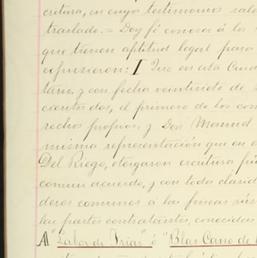 critura, en cuyo testimonio sale
traslado. = Doy fé conocer á los
que tienen aptitud legal para
expusieron: Que en esta Ciud
tario, y con fecha veintisiete de
cientos dos, el primero de los com
rechos propios, y Don Manuel
misma representación que en e
Del Riego, otorgaron escritura pú
comun acuerdo, y con toda clarid
deros comunes á las fincas rús
las partes contratantes, conocidas
"Labor de Frías" ó "Blas Cano de